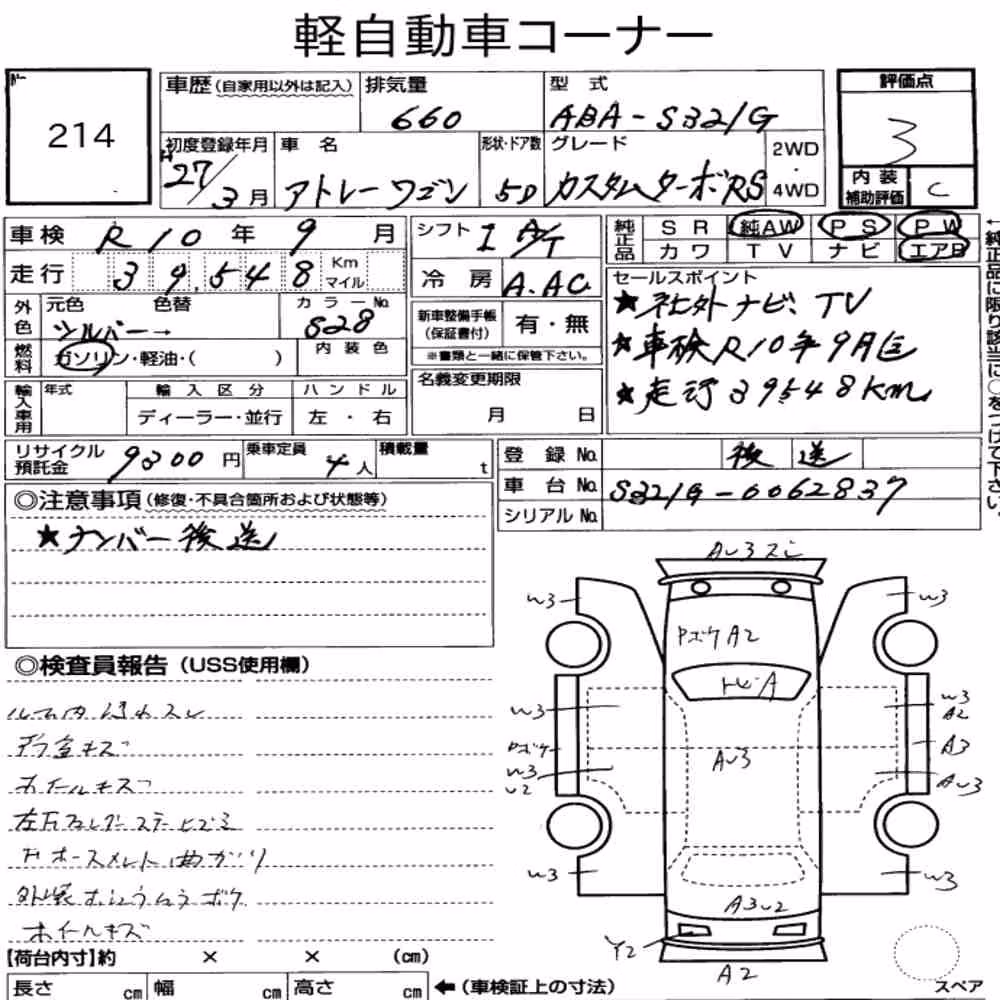 軽自動車コーナー
214
車歴(自家用以外は記入) 排気量 660 型式 ABA-S321G
評価点 3
内装補助評価 C
初度登録年月 H27/3月 車名 アトレーワゴン 形状・ドア数 5D グレード カスタムターボRS 2WD 4WD
車検 R10年 9月
走行 39,548 Km マイル
シフト I A/T
冷房 A.AC
純正品 SR 純AW PS PW
カワ TV ナビ エアB
←純正品に限り該当に○をつけて下さい。
セールスポイント
★社外ナビ、TV
★車検R10年9月迄
★走行39548km
外色 元色 シルバー→ 色替 カラーNo. S28
燃料 ガソリン・軽油・( ) 内装色
新車整備手帳(保証書付) 有・無
※書類と一緒に保管下さい。
輸入車用 年式 輸入区分 ディーラー・並行 ハンドル 左・右
名義変更期限 月 日
リサイクル預託金 9300円 乗車定員 4人 積載量 t
登録No. 後送
車台No. S321G-0062837
シリアルNo.
◎注意事項(修復・不具合箇所および状態等)
★ナンバー後送
◎検査員報告(USS使用欄)
ホイールキズ
外装
ホイールキズ
W3
W3
PボケA2
W3
W3
A2
Pボケ
A3
W3
U2
AU3
AU3
W3
W3
A3U2
Y2
A2
【荷台内寸】約 × × (cm)
長さ cm 幅 cm 高さ cm ←(車検証上の寸法)
スペア